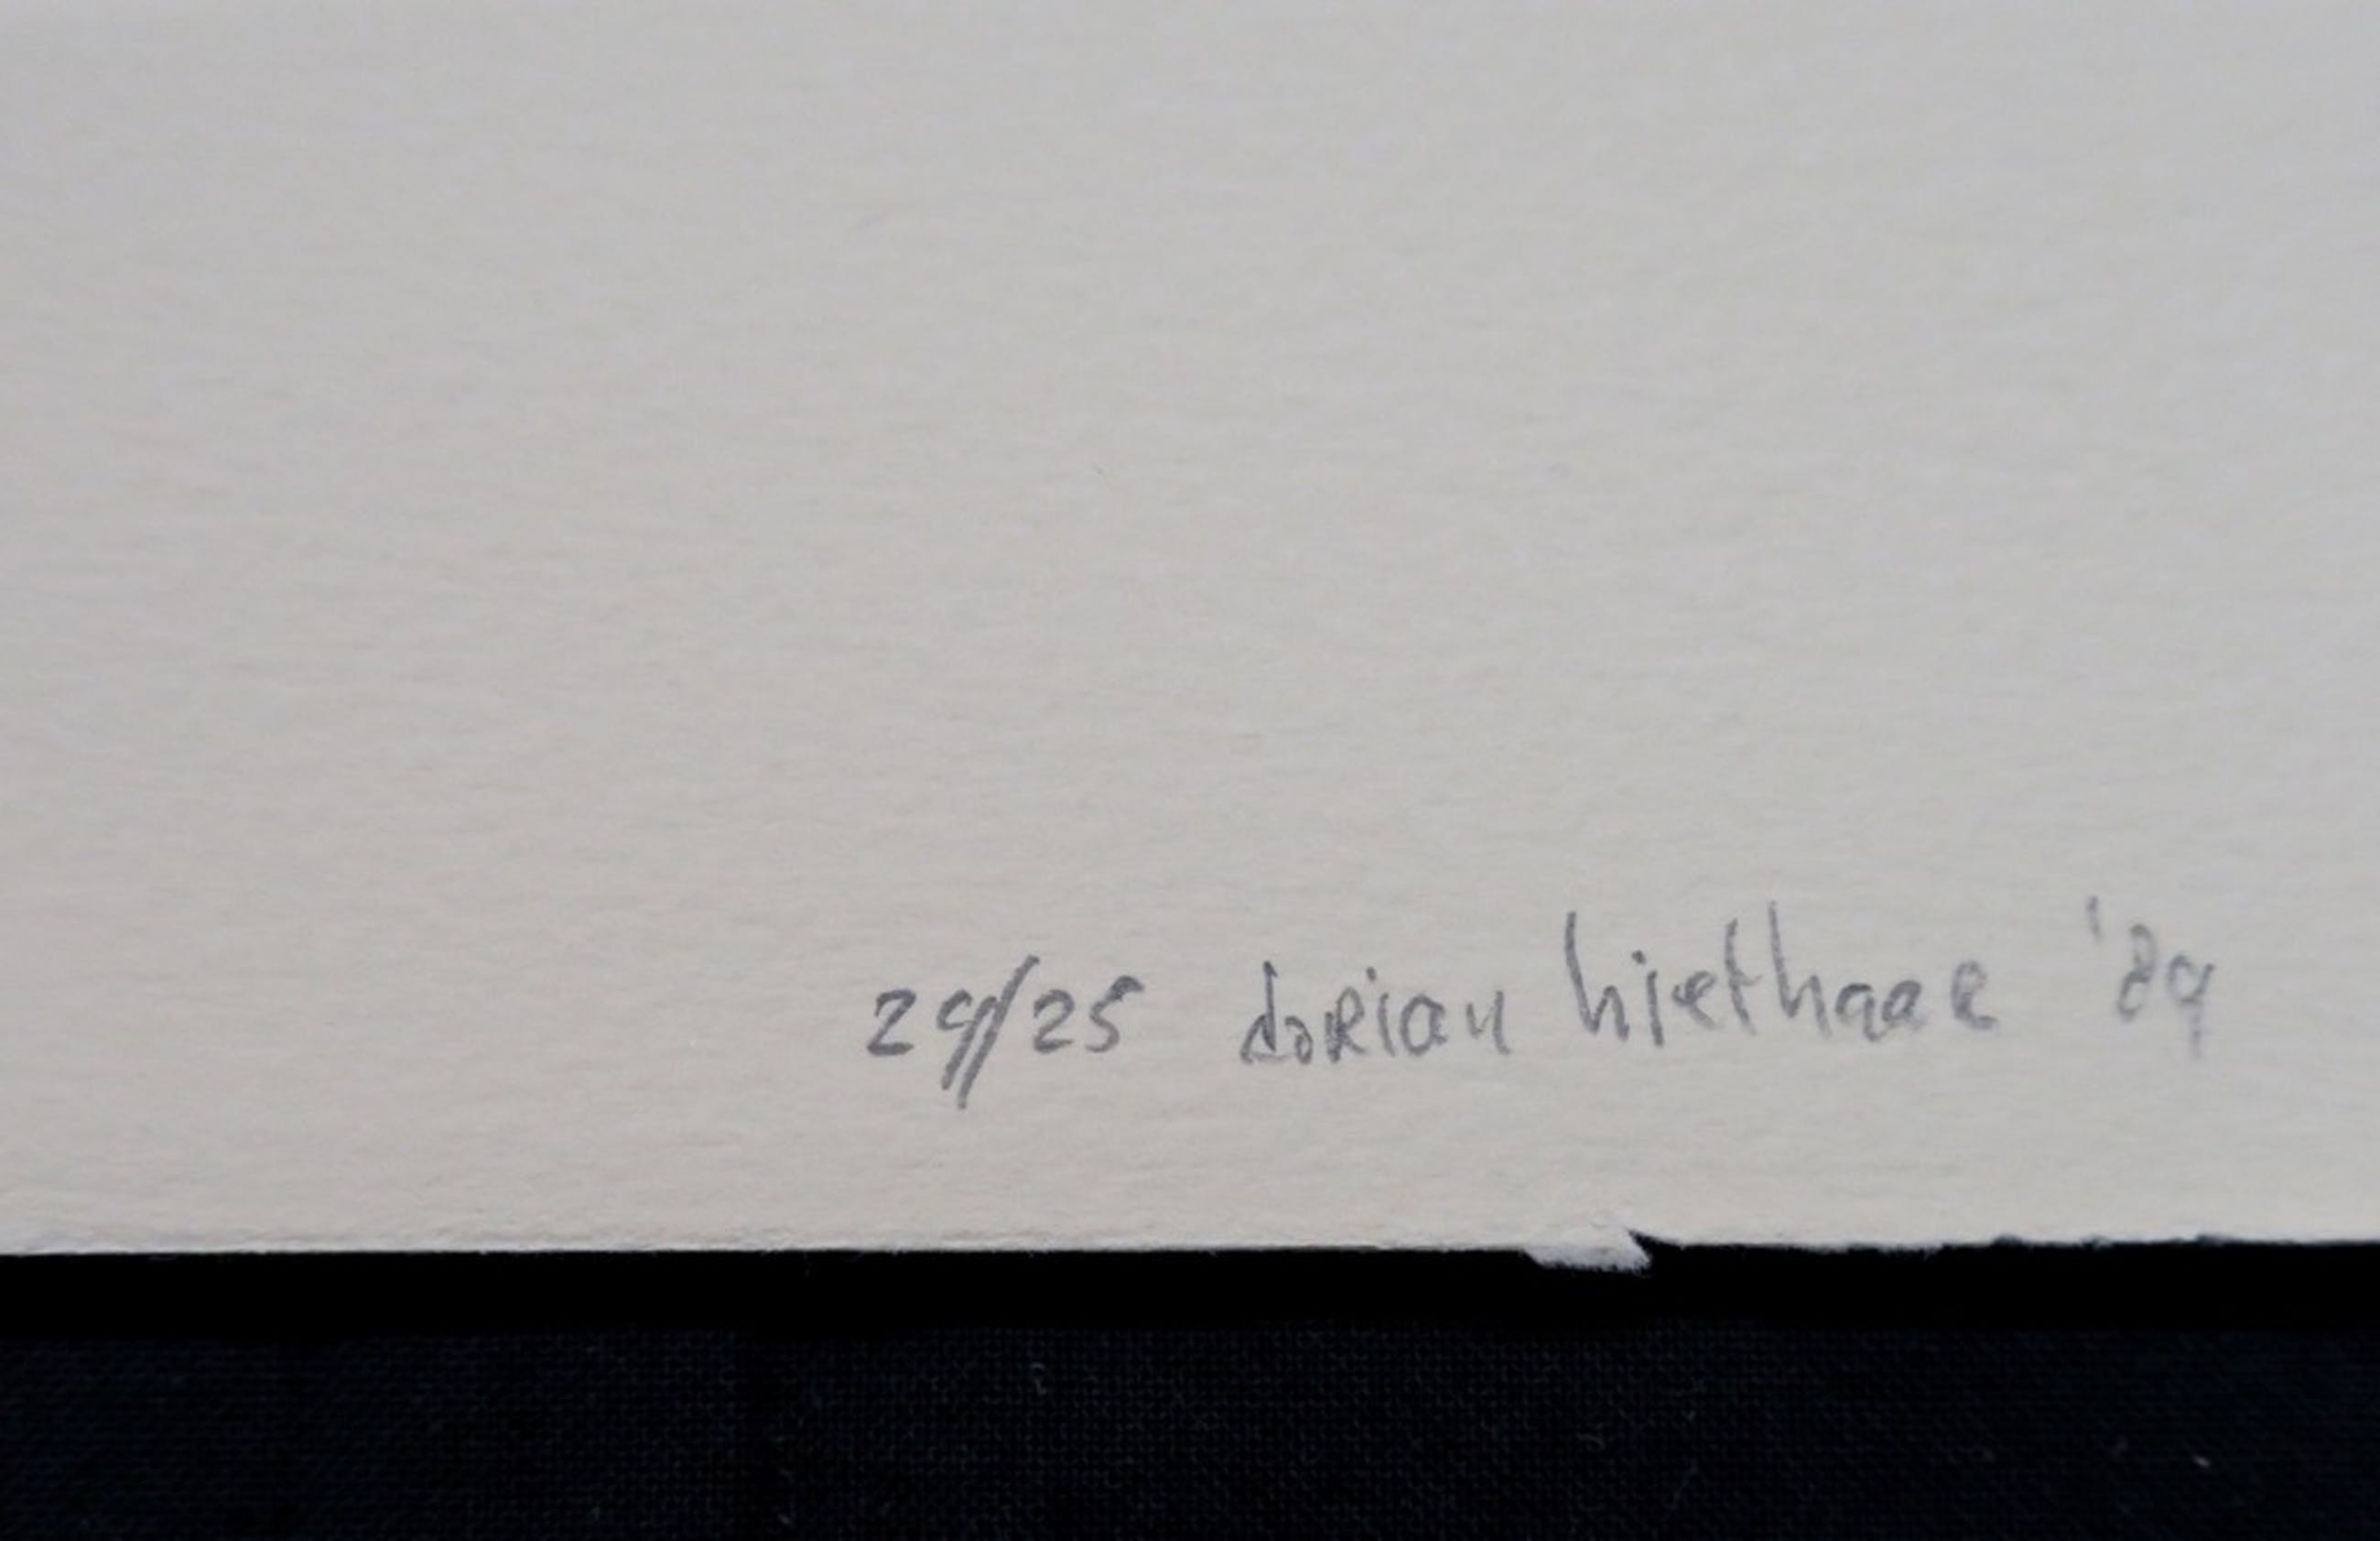 24/25 dorian hiethaar '89